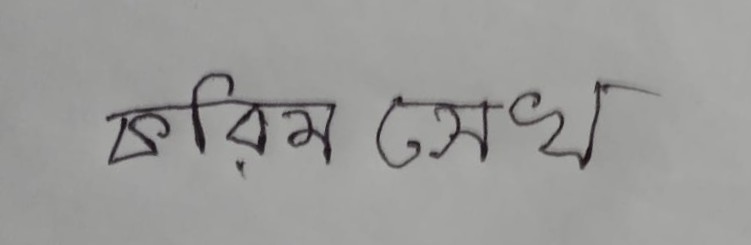 করিম সেখ